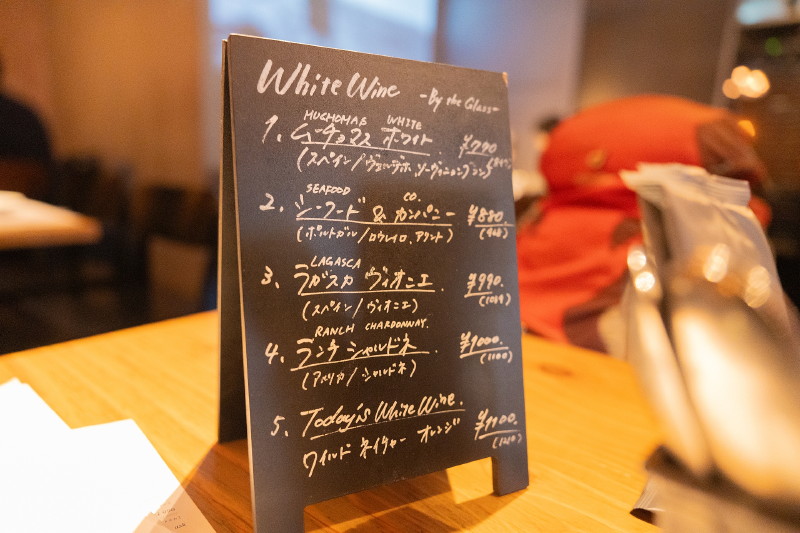 White Wine -By the Glass-
MUCHOMAS WHITE
1. ムーチョマス ホワイト ¥790
(スペイン/ヴェルデホ ソーヴィニョンブラン)
SEAFOOD CO.
2. シーフード & カンパニー ¥880
(ポルトガル/ロウレイロ, アリント) (968)
LAGASCA
3. ラガスカ ヴィオニエ ¥990.
(スペイン/ヴィオニエ) (1089)
RANCH CHARDONNAY.
4. ランチ シャルドネ ¥1000.
(アメリカ/シャルドネ) (1100)
5. Today's White Wine. ¥1100.
ワイルド ネイチャー オレンジ (1210)